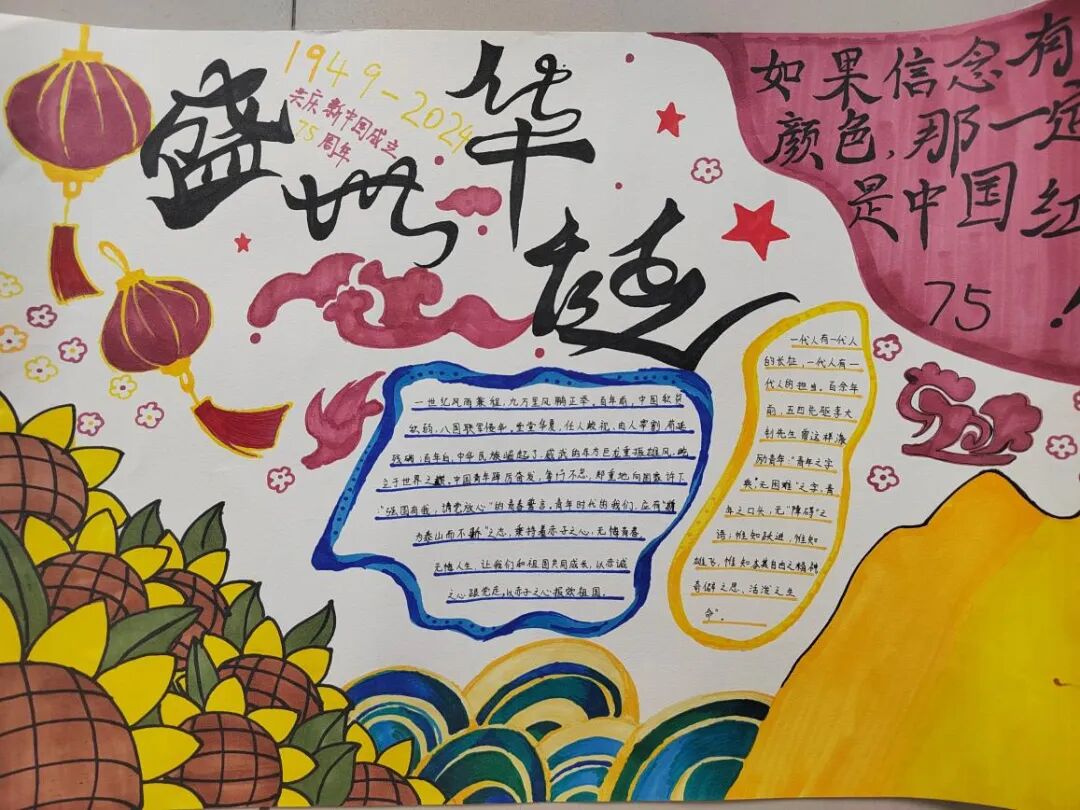 1949-2024
共庆新中国成立
75周年
盛世华诞
如果信念有
颜色,那一定
是中国红
75!
一世纪风雨兼程,九万里风鹏正举。百年前,中国软贫
软弱,八国联军侵华,堂堂华夏,任人欺视,由人宰割,荷延
残喘;百年自,中华民族崛起了,威武的东方巨龙重振雄风,屹
立于世界之巅,中国青年踔厉奋发,笃行不怠,郑重地向国家许下
"强国有我,请党放心"的青春誓言。青年时代的我们,应有"攀
为泰山而不骄"之志,秉持着赤子之心,无悔青春
无悔人生,让我们和祖国共同成长,以赤诚
之心跟党走,以赤子之心报效祖国。
一代人有一代人
的长征,一代人有一
代人的担当。百余年
前,五四先驱李大
钊先生曾这样激
励青年:"青年之字
典,无困难"之字,青
年之口头,无"障碍"之
语;惟知跃进,惟知
雄飞,惟知本其自由之精神
奇僻之思,活泼之生
命"。